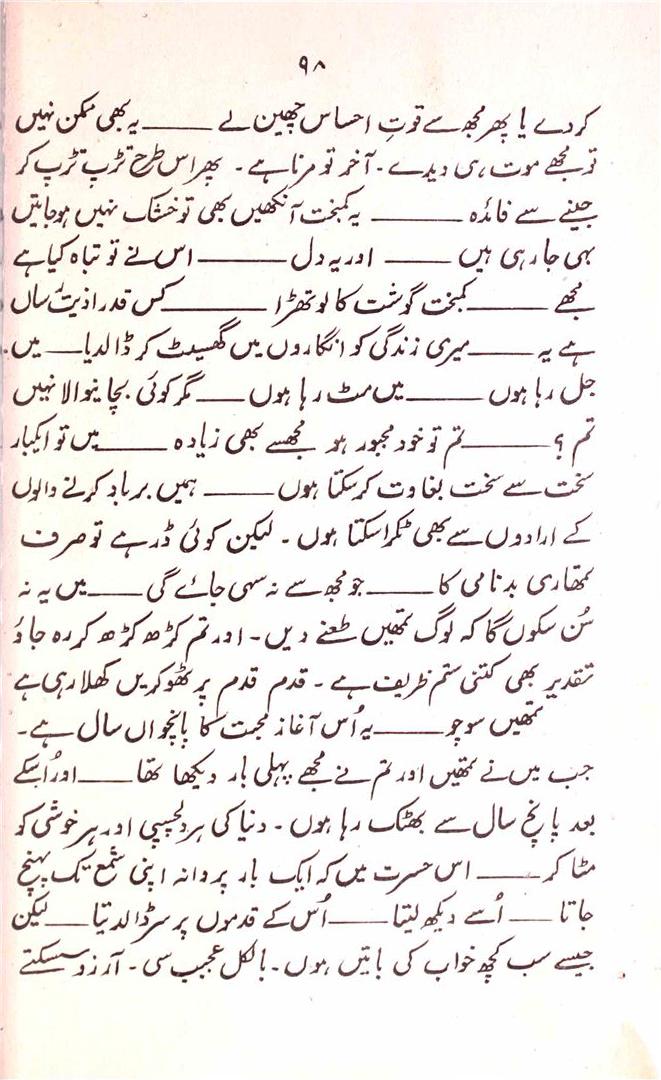 ۹۸
کر دے یا پھر مجھ سے قوتِ احساس چھین لے ——— یہ بھی ممکن نہیں
تو مجھے موت ہی دیدے ۔ آخر تو مرنا ہے ۔ پھر اس طرح تڑپ تڑپ کر
جینے سے فائدہ ——— یہ کمبخت آنکھیں بھی تو خشک نہیں ہو جاتیں
بہی جا رہی ہیں ——— اور یہ دل ——— اس نے تو تباہ کیا ہے
مجھے ——— کمبخت گوشت کا لوتھڑا ——— کس قدر اذیت رساں
ہے یہ ——— میری زندگی کو انگاروں میں گھسیٹ کر ڈالدیا ——— میں
جل رہا ہوں ——— میں مٹ رہا ہوں ——— مگر کوئی بچانیوالا نہیں
تم ؟ ——— تم تو خود مجبور ہو مجھسے بھی زیادہ ——— میں تو ایکبار
سخت سے سخت بغاوت کر سکتا ہوں ——— ہمیں برباد کرنے والوں
کے ارادوں سے بھی ٹکرا سکتا ہوں ۔ لیکن کوئی ڈر ہے تو صرف
تمھاری بدنامی کا ——— جو مجھ سے نہ سہی جائے گی ——— میں یہ نہ
سُن سکوں گا کہ لوگ تمھیں طعنے دیں ۔ اور تم کڑھ کڑھ کر رہ جاؤ
تقدیر بھی کتنی ستم ظریف ہے ۔ قدم قدم پر ٹھوکریں کھلا رہی ہے
تمھیں سوچو ——— یہ اُس آغازِ محبت کا پانچواں سال ہے ۔
جب میں نے تمھیں اور تم نے مجھے پہلی بار دیکھا تھا ——— اور اُسکے
بعد پانچ سال سے بھٹک رہا ہوں ۔ دنیا کی ہر دلچسپی اور ہر خوشی کو
مٹا کر ——— اس حسرت میں کہ ایک بار پروانہ اپنی شمع تک پہنچ
جاتا ——— اُسے دیکھ لیتا ——— اُس کے قدموں پر سر ڈالدیتا ——— لیکن
جیسے سب کچھ خواب کی باتیں ہوں ۔ بالکل عجیب سی ۔ آرزو سسکتے